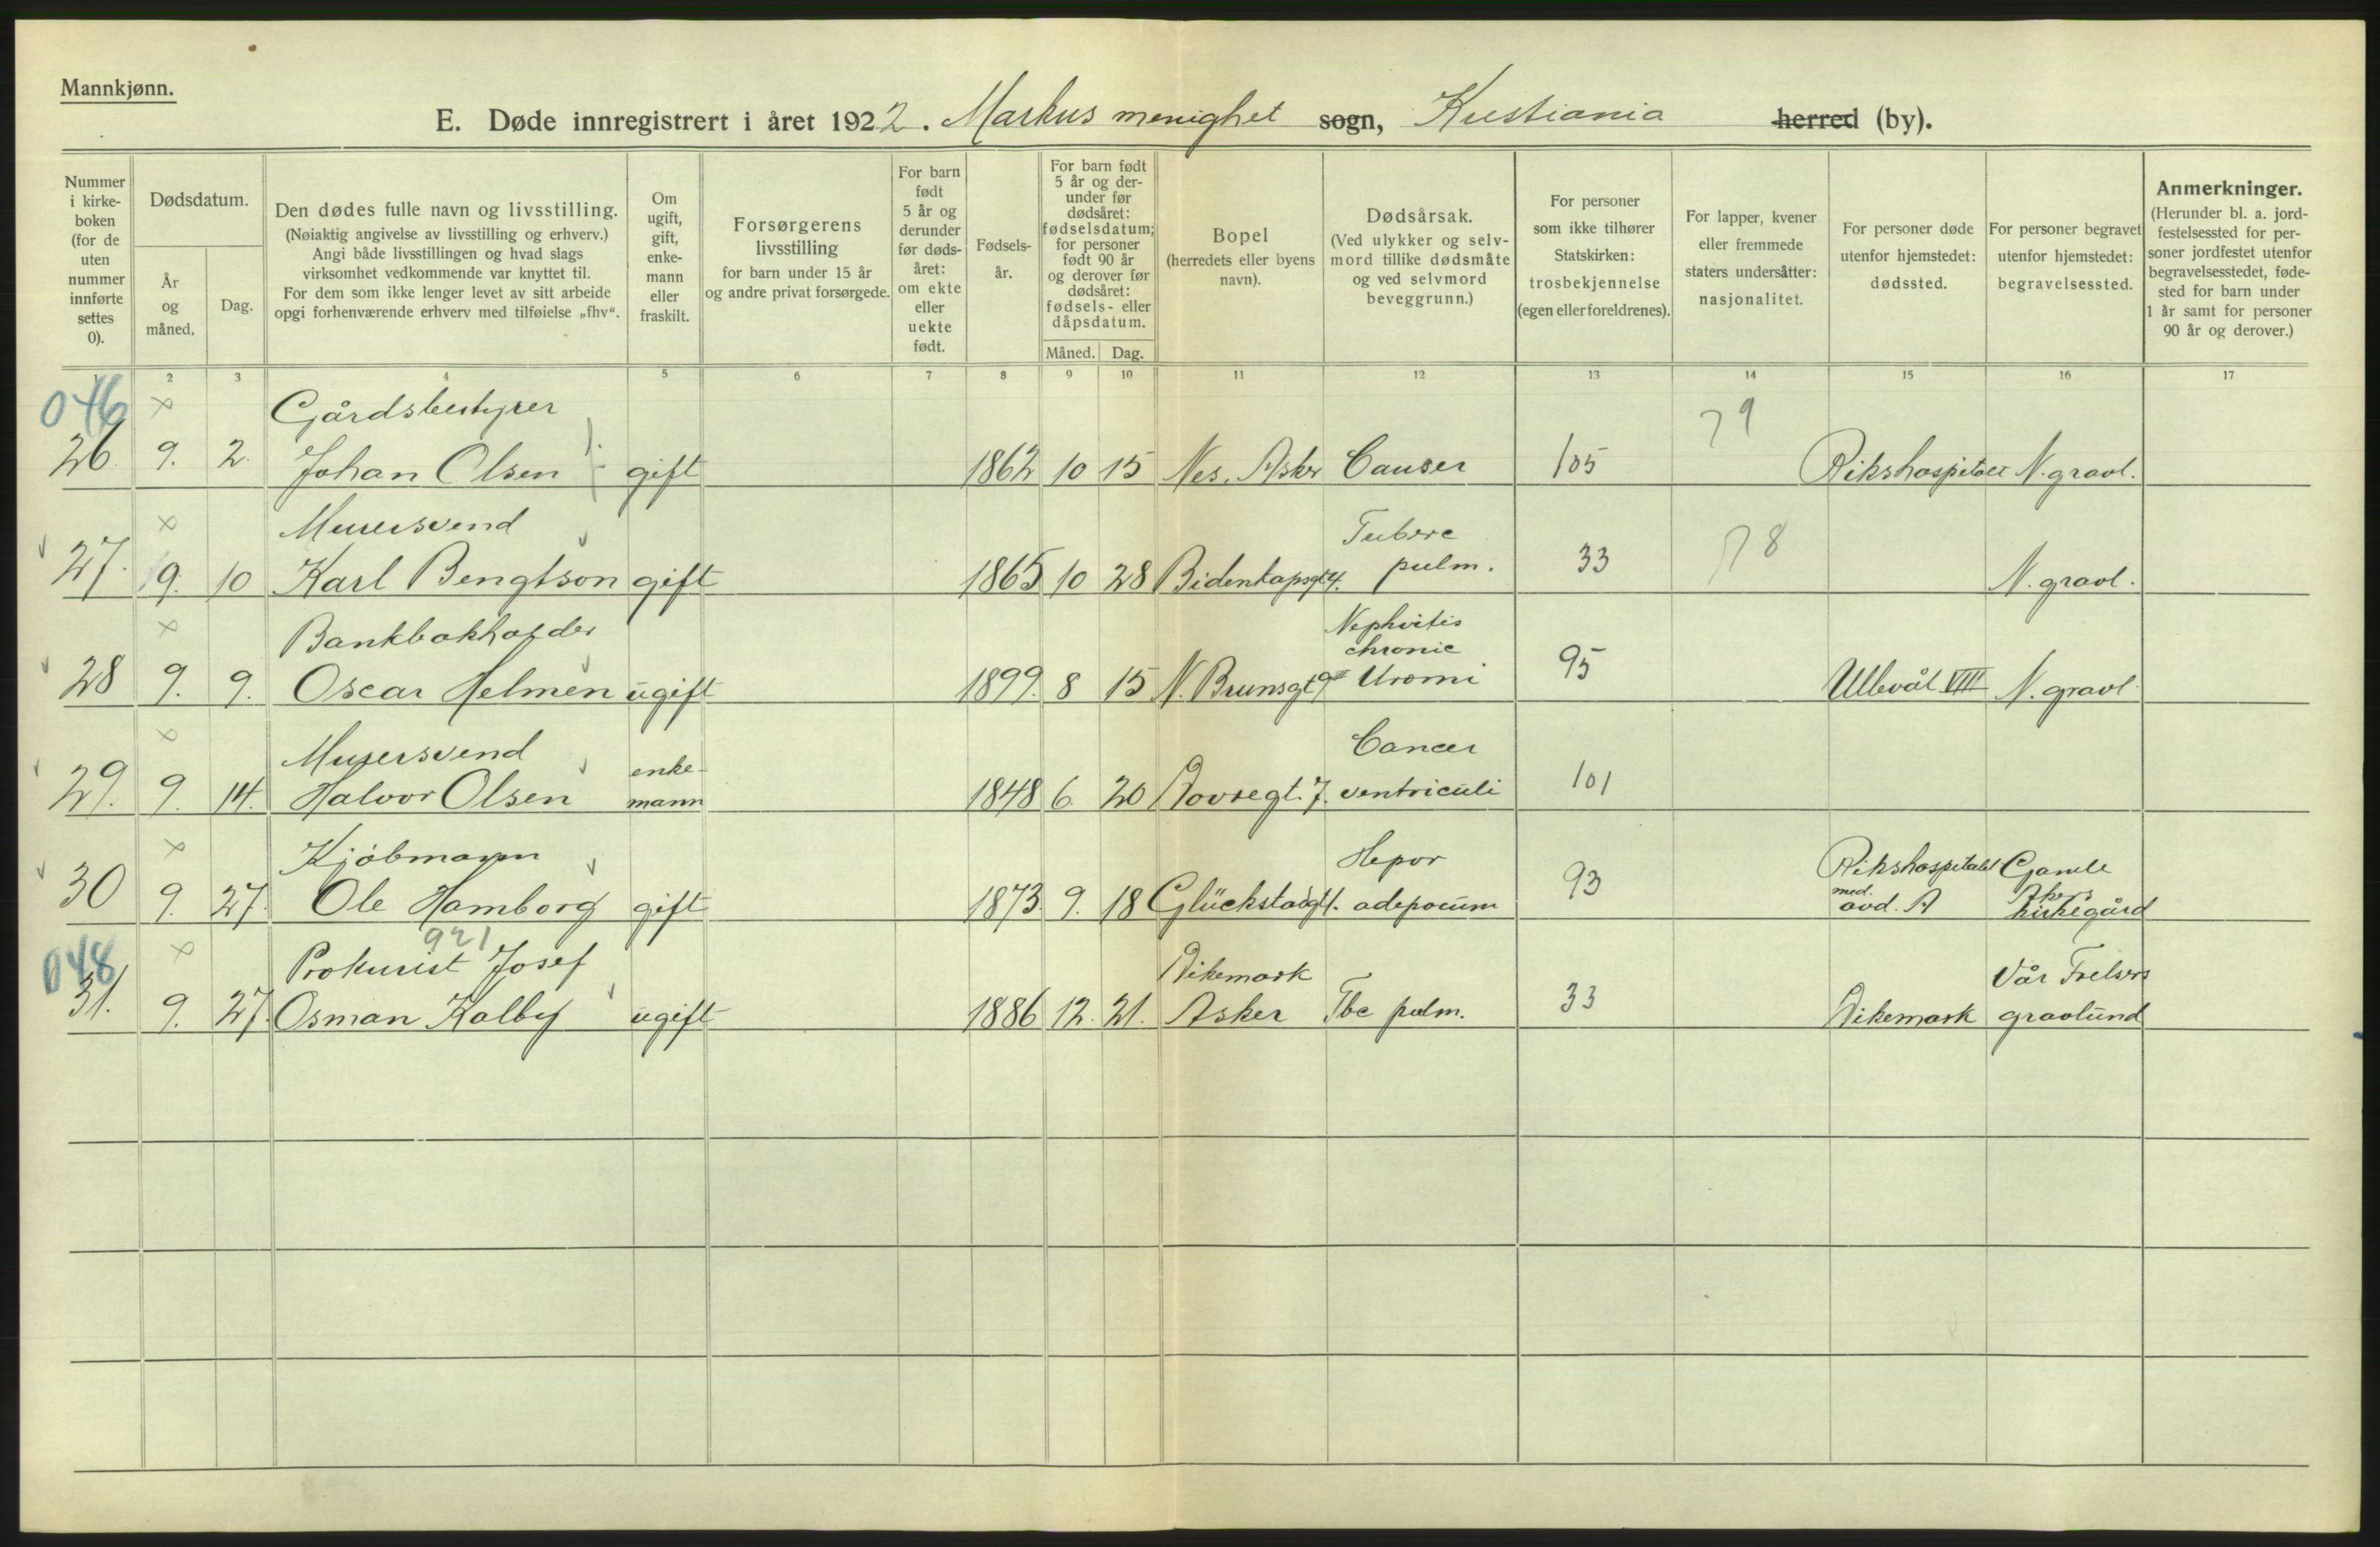 Mannkjønn.
E. Døde innregistrert i året 1922. Markus menighet sogn, Kristiania herred (by).
Nummer i kirke-boken (for de uten nummer innførte settes 0).
Dødsdatum.
År og måned.
Dag.
Den dødes fulle navn og livsstilling.
(Nøiaktig angivelse av livsstilling og erhverv.)
Angi både livsstillingen og hvad slags
virksomhet vedkommende var knyttet til.
For dem som ikke lenger levet av sitt arbeide
opgi forhenværende erhverv med tilføielse „fhv“.
Om ugift, gift, enke-mann eller fraskilt.
Forsørgerens livsstilling
for barn under 15 år
og andre privat forsørgede.
For barn født 5 år og derunder før døds-året: om ekte eller uekte født.
Fødsels-år.
For barn født 5 år og der-under før dødsåret: fødselsdatum; for personer født 90 år og derover før dødsåret: fødsels- eller dåpsdatum.
Måned. Dag.
Bopel
(herredets eller byens navn).
Dødsårsak.
(Ved ulykker og selv-mord tillike dødsmåte og ved selvmord beveggrunn.)
For personer som ikke tilhører Statskirken: trosbekjennelse (egen eller foreldrenes).
For lapper, kvener eller fremmede staters undersåtter: nasjonalitet.
For personer døde utenfor hjemstedet: dødssted.
For personer begravet utenfor hjemstedet: begravelsessted.
Anmerkninger.
(Herunder bl. a. jord-festelsessted for per-soner jordfestet utenfor begravelsesstedet, føde-sted for barn under 1 år samt for personer 90 år og derover.)
1 2 3 4 5 6 7 8 9 10 11 12 13 14 15 16 17
046 × Gårdsbestyrer 79
26. 9. 2. Johan Olsen gift 1862 10 15 Nes. Asker Canser 105 Rikshospitalet N. gravl.
× Murersvend Tuberc
27. 9. 10 Karl Bengtson gift 1865 10 28 Bidenkapsgt 4. pulm. 33 78 N. gravl.
× Bankbokholder Nephritis
chronic
28 9. 9. Oscar Helmen ugift 1899. 8 15 N. Brunsgt 9 II Uremi 95 Ullevål VIII N. gravl.
× Murersvend enke- Cancer
29. 9. 14. Halvor Olsen mann 1848 6. 20 Dovregt. 7. ventriculi 101
× Kjøbmann Hepar Rikshospitalet Gamle
med. Akers
30 9. 27. Ole Hamborg gift 1873. 9. 18 Glückstadgt 1. adiposum 93 avd. A kirkegård
921
048 × Prokurist Josef Dikemark Vår Frelsers
31. 9. 27. Osman Kalby ugift 1886 12. 21. Asker Tbc pulm. 33 Dikemark gravlund